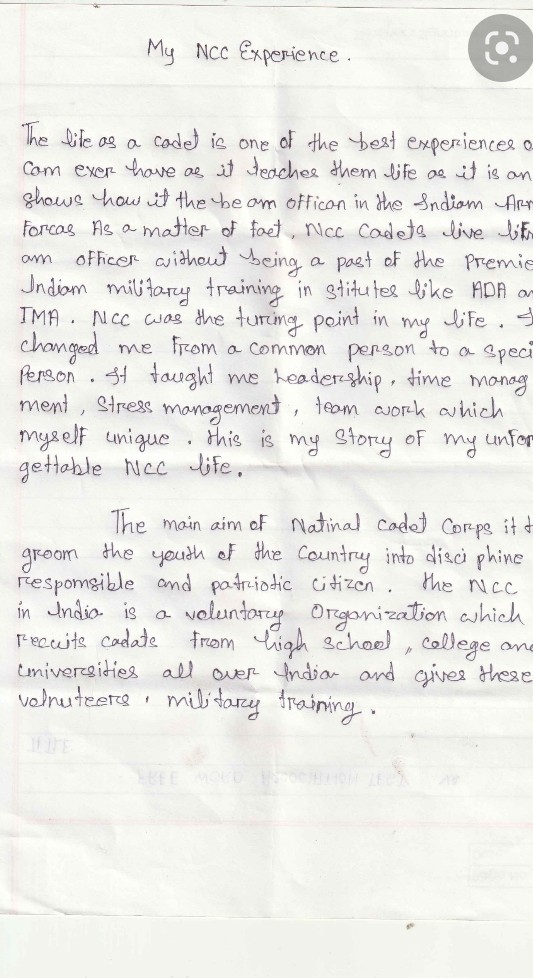 My NCC Experience.
The life as a cadet is one of the best experiences o
Can exer have as it teaches them life as it is an
shows how it the be an offican in the Indian Arm
Forcas As a matter of fact, Ncc Cadets live life
an officer without being a past of the Premie
Indian military training in stitutes like ADA an
IMA. NCC was the turing point in my life. I
changed me from a common person to a speci
Person. It taught me leadership, time manag
ment, Stress management, team work which
myself unique. this is my Story of my unfor
gettable NCC life.
The main aim of Natinal Cadet Corps it t
groom the youth of the Country into disci phine
responsible and patriotic citizen. the NCC
in India is a voluntary Organization which
recuits cadats from high school, college and
universities all over India and gives these
volnuteers, military training.